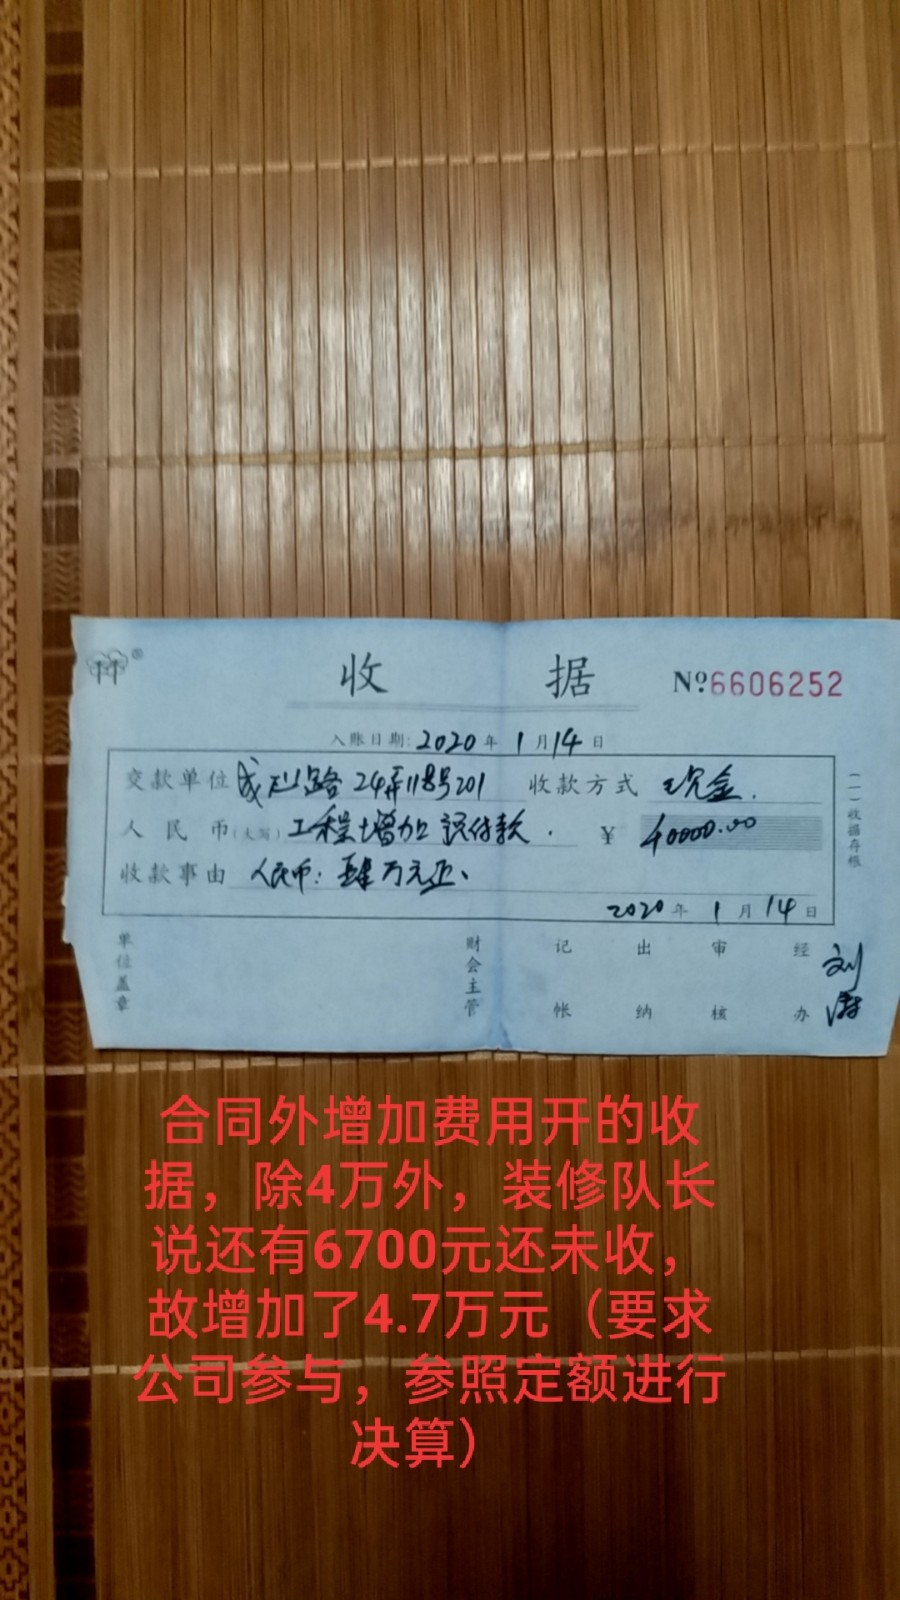 收 据 Nº6606252
入账日期:2020年1月14日
交款单位 成山路24弄118号201 收款方式 现金.
人民币(大写) 工程增加预付款. ¥ 40000.00
收款事由 人民币:肆万元正、
2020年1月14日
(一)收据存根
单位盖章 财会主管 记帐 出纳 审核 经办 刘涛
合同外增加费用开的收
据，除4万外，装修队长
说还有6700元还未收，
故增加了4.7万元（要求
公司参与，参照定额进行
决算）